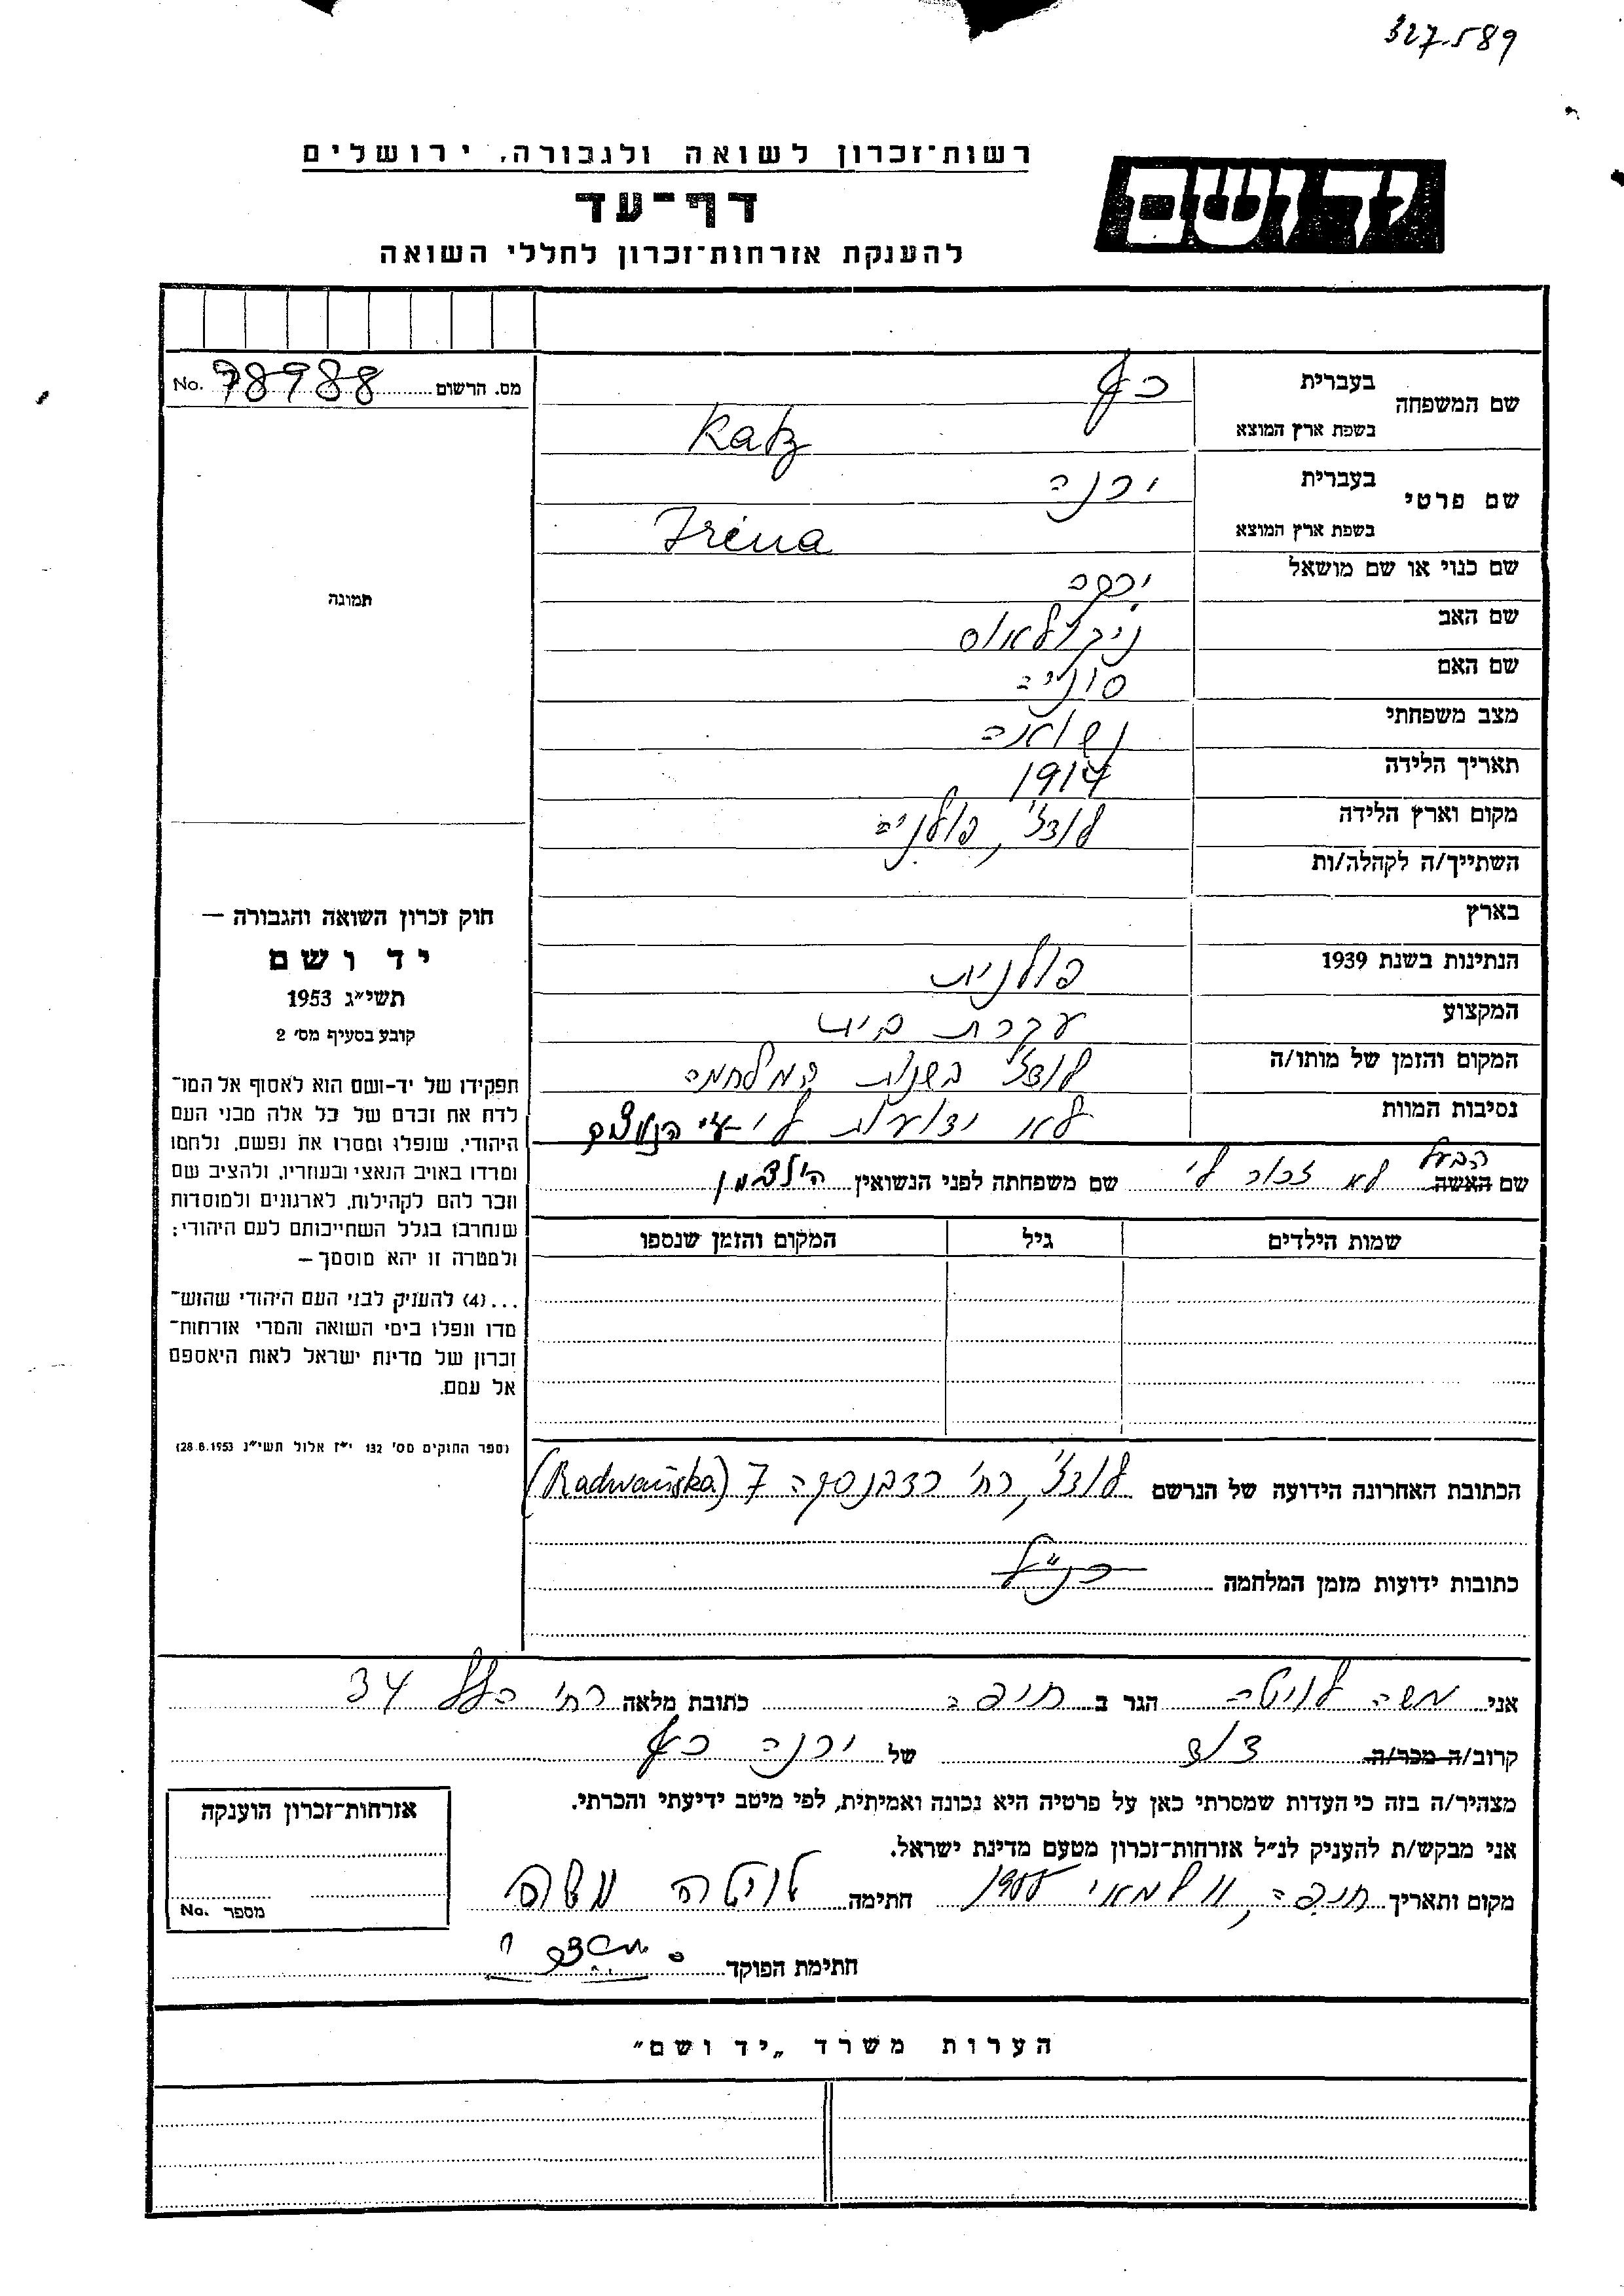 327.589
רשות־זכרון לשואה ולגבורה, ירושלים
יד ושם
דף־עד
להענקת אזרחות־זכרון לחללי השואה
מס. הרשום 78988 No.
שם המשפחה
בעברית כץ
בשפת ארץ המוצא Katz
שם פרטי
בעברית ירנה
בשפת ארץ המוצא Irena
שם כנוי או שם מושאל ירקה
שם האב ניקולאוס
שם האם סוניה
מצב משפחתי נשואה
תאריך הלידה 1914
מקום וארץ הלידה לודז', פולניה
השתייך/ה לקהלה/ות
בארץ
הנתינות בשנת 1939 פולנית
המקצוע עקרת בית
המקום והזמן של מותו/ה לודז' בשנות המלחמה
נסיבות המוות לא ידועות לי ע"י הנאצים
הבעל
שם האשה לא זכור לי שם משפחתה לפני הנשואין הילדמן
שמות הילדים גיל המקום והזמן שנספו
תמונה
חוק זכרון השואה והגבורה —
יד ושם
תשי״ג 1953
קובע בסעיף מס׳ 2
תפקידו של יד-ושם הוא לאסוף אל המו־
לדת את זכרם של כל אלה מבני העם
היהודי, שנפלו ומסרו את נפשם, נלחמו
ומרדו באויב הנאצי ובעוזריו, ולהציב שם
וזכר להם לקהילות, לארגונים ולמוסדות
שנחרבו בגלל השתייכותם לעם היהודי;
ולמטרה זו יהא מוסמך —
...(4) להעניק לבני העם היהודי שהוש־
מדו ונפלו בימי השואה והמרי אזרחות־
זכרון של מדינת ישראל לאות היאספם
אל עמם.
(ספר החוקים מס׳ 132 י״ז אלול תשי״ג 28.8.1953)
הכתובת האחרונה הידועה של הנרשם לודז', רח' רדבנסקה 7 (Radwańska)
כתובות ידועות מזמן המלחמה כנ"ל
אני משה לויטה הגר ב חיפה כתובת מלאה רח' הלל 34
קרוב/ה מכר/ה דוד של ירנה כץ
מצהיר/ה בזה כי העדות שמסרתי כאן על פרטיה היא נכונה ואמיתית, לפי מיטב ידיעתי והכרתי.
אני מבקש/ת להעניק לנ״ל אזרחות־זכרון מטעם מדינת ישראל.
מקום ותאריך חיפה, 11 למאי 1955 חתימה לויטה משה
חתימת הפוקד
אזרחות־זכרון הוענקה
מספר No.
הערות משרד „יד ושם״